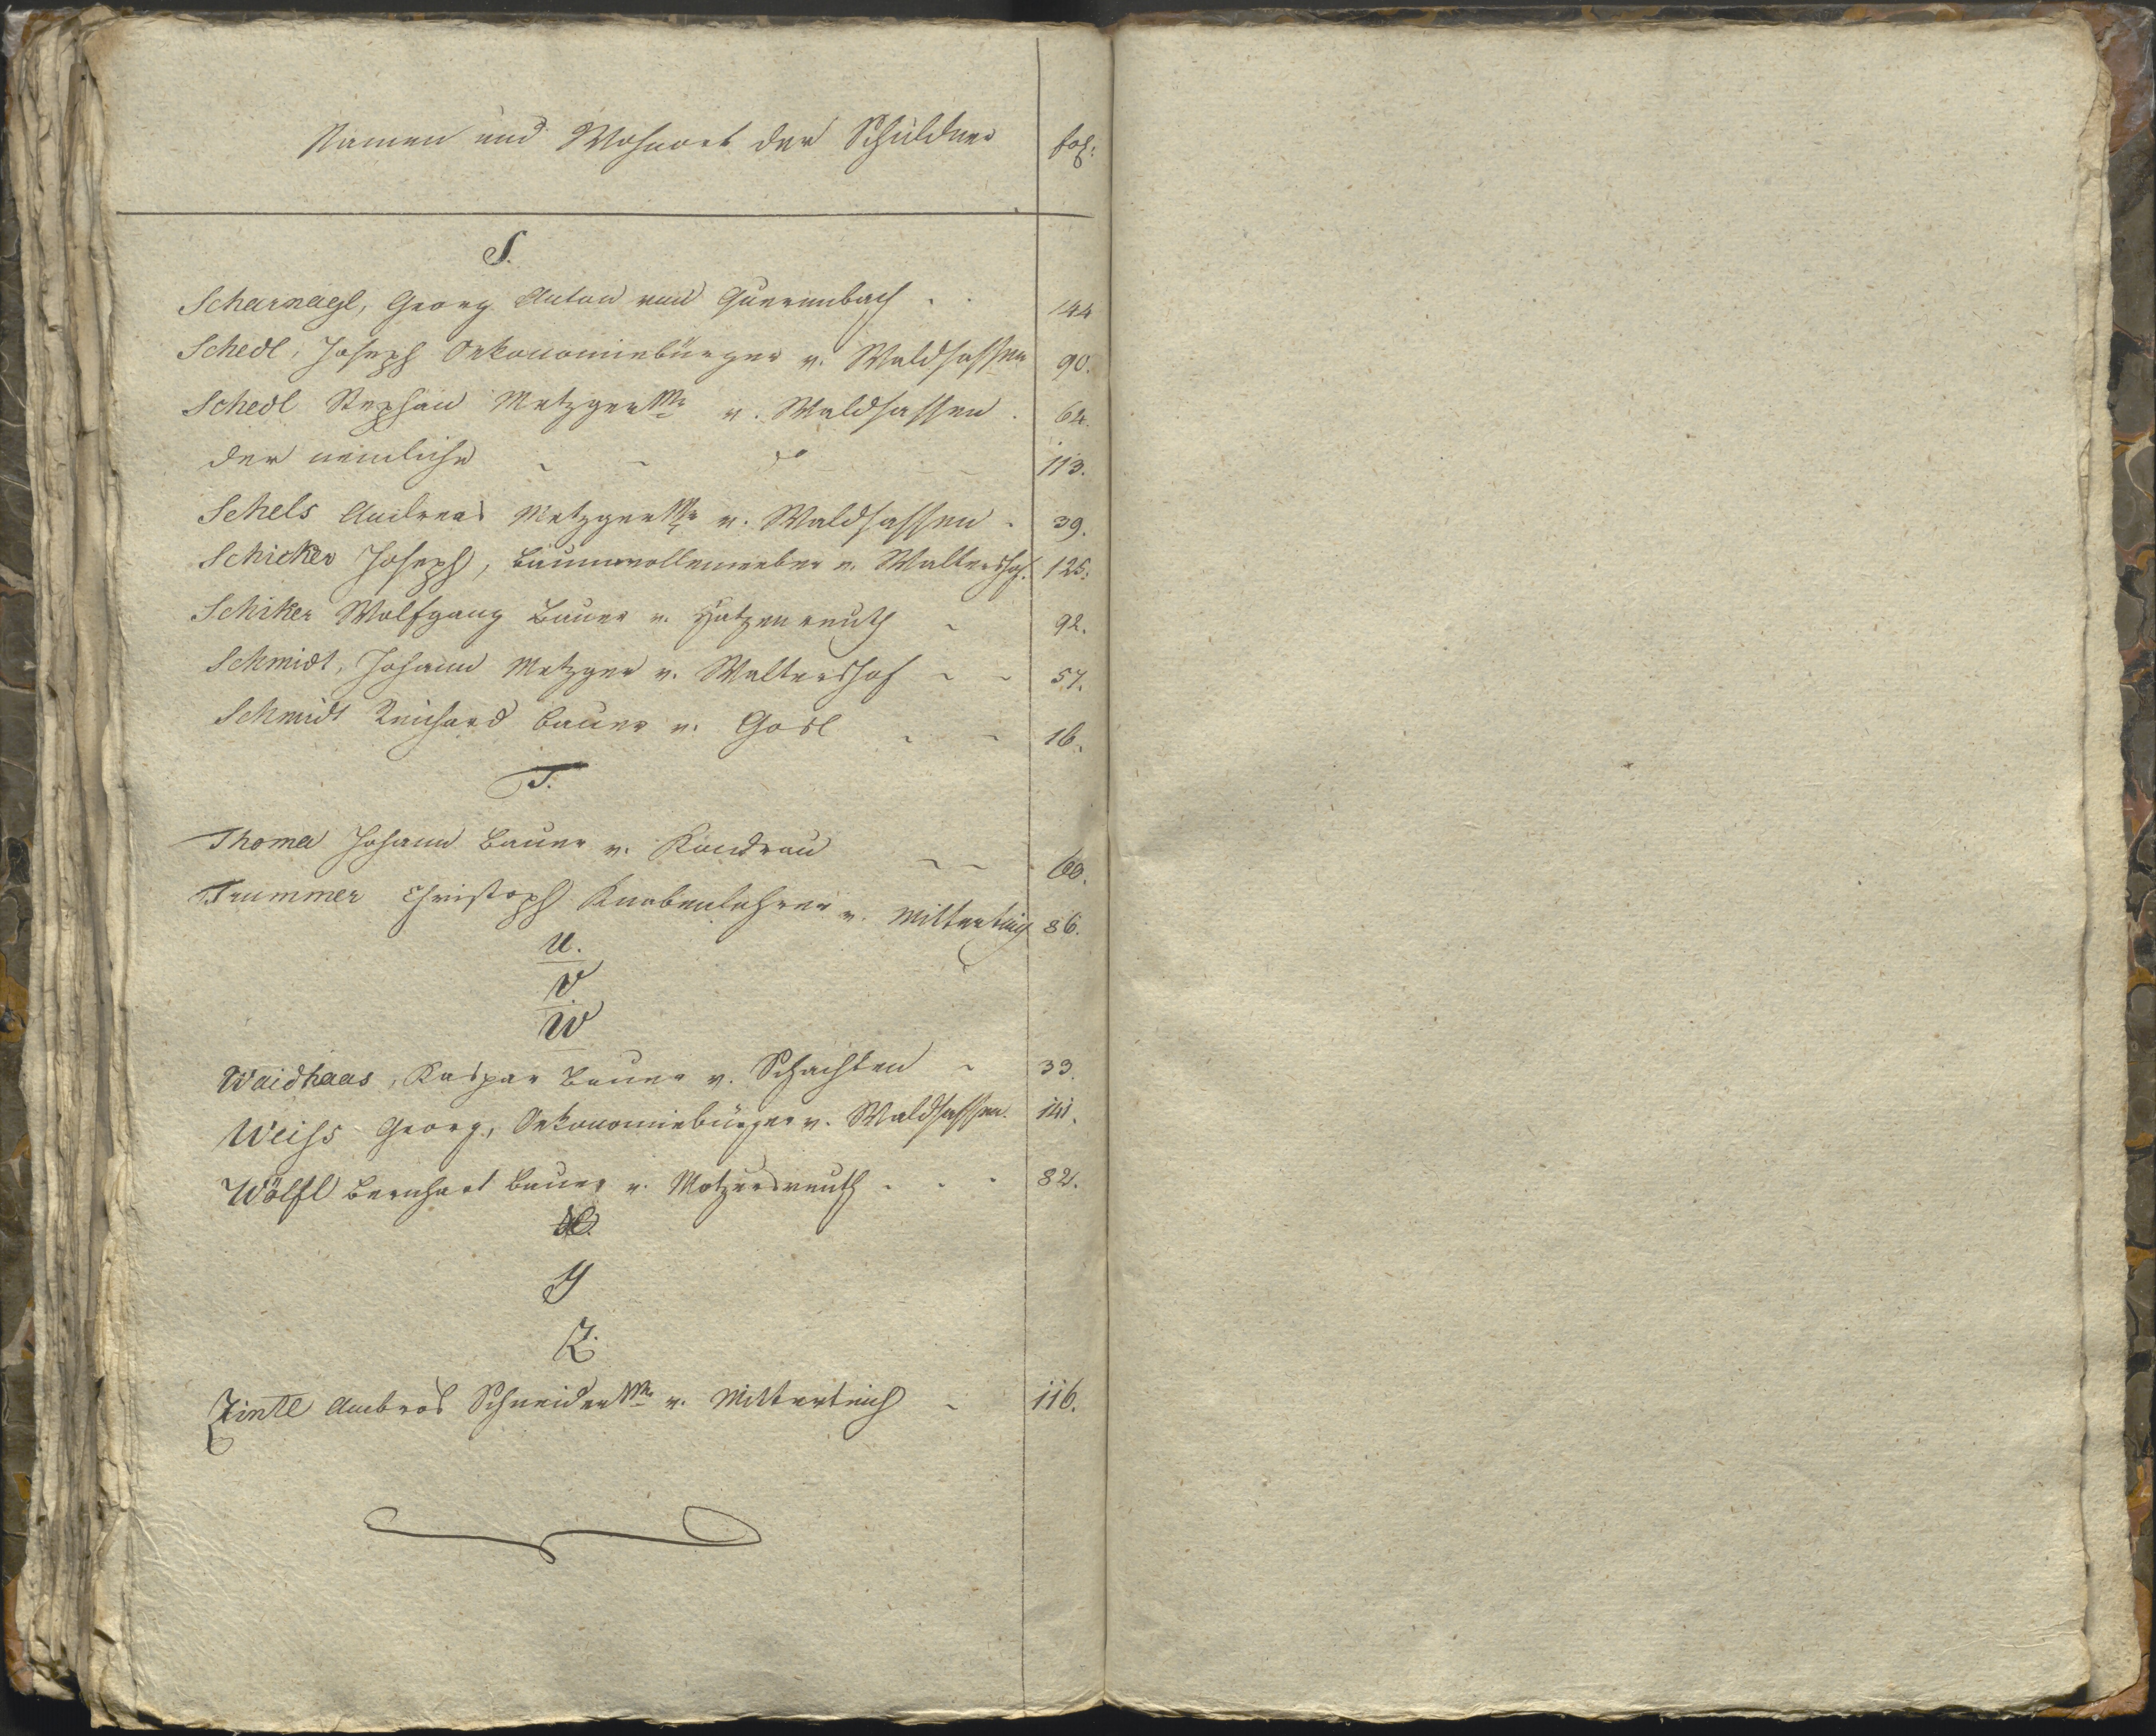 Namen und Wohnort der Schuldner fol:
S.
Scharnagl, Georg Anton von Querenbach . . 144
Schedl, Joseph Oekonomiebürger v. Waldsassen 90.
Schedl Stephan Metzger Mr v. Waldsassen . 64.
der nemliche - - do - 113.
Schels Andreas Metzger Mr v. Waldsassen - 39.
Schicker Joseph, Baumwollenweber v. Waltershof. 125.
Schiker Wolfgang Bauer v. Hatzenreuth - 92.
Schmidt, Johann Metzger v. Waltershof - - 57.
Schmidt Reichard Bauer v. Gosl - - 16.
T.
Thoma Johann Bauer v. Kondrau - - 60.
Trummer Christoph Knabenlehrer v. Mitterteich 86.
U.
V.
W
Waidhaas, Kaspar Bauer v. Schachten - 33.
Weiss Georg, Oekonomiebürger v. Waldsassen. 141.
Wölfl Bernhart Bauer v. Motzersreuth - - - 82.
X.
Y
Z.
Zintl Ambros Schneider Mr v. Mitterteich - 116.